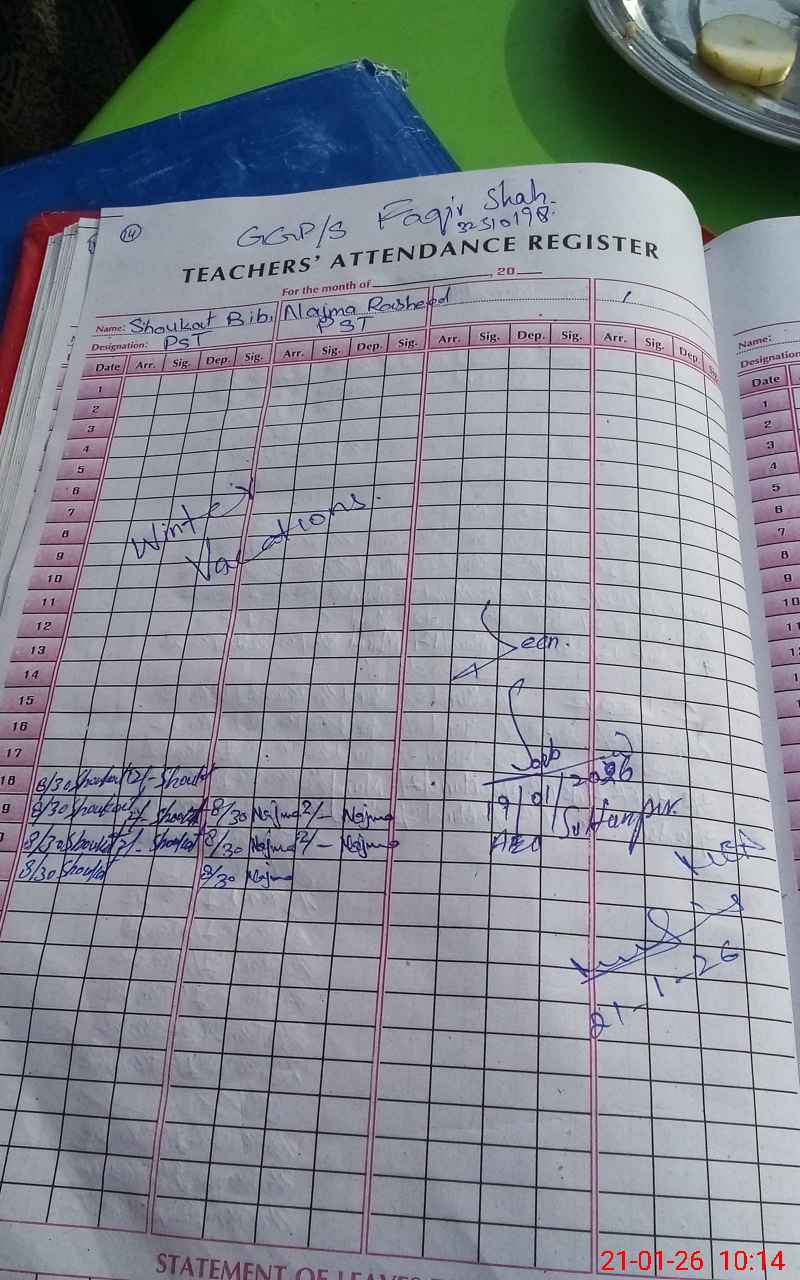 14
GGP/S Faqir Shah.
32510198
TEACHERS' ATTENDANCE REGISTER
For the month of , 20
Name: Shoukat Bibi Najma Rasheed
Designation: PST PST
Date Arr. Sig. Dep. Sig. Arr. Sig. Dep. Sig. Arr. Sig. Dep. Sig. Arr. Sig. Dep.
1
2
3
4
5
6
7
8
9
10
11
12
13
14
15
16
17
Winter
Vacations.
Seen.
18 8/30 Shoukat 2/- Shoukat
9 8/30 Shoukat 2/- Shoukat 8/30 Najma 2/- Najma
8/30 Shoukat 2/- Shoukat 8/30 Najma 2/- Najma
8/30 Shoukat 8/30 Najma
19/01/2026
AEO Sultanpur.
MEA
21-1-26
Name:
Designation
Date
1
2
3
4
5
6
7
8
9
10
STATEMENT OF LEAVES
21-01-26 10:14